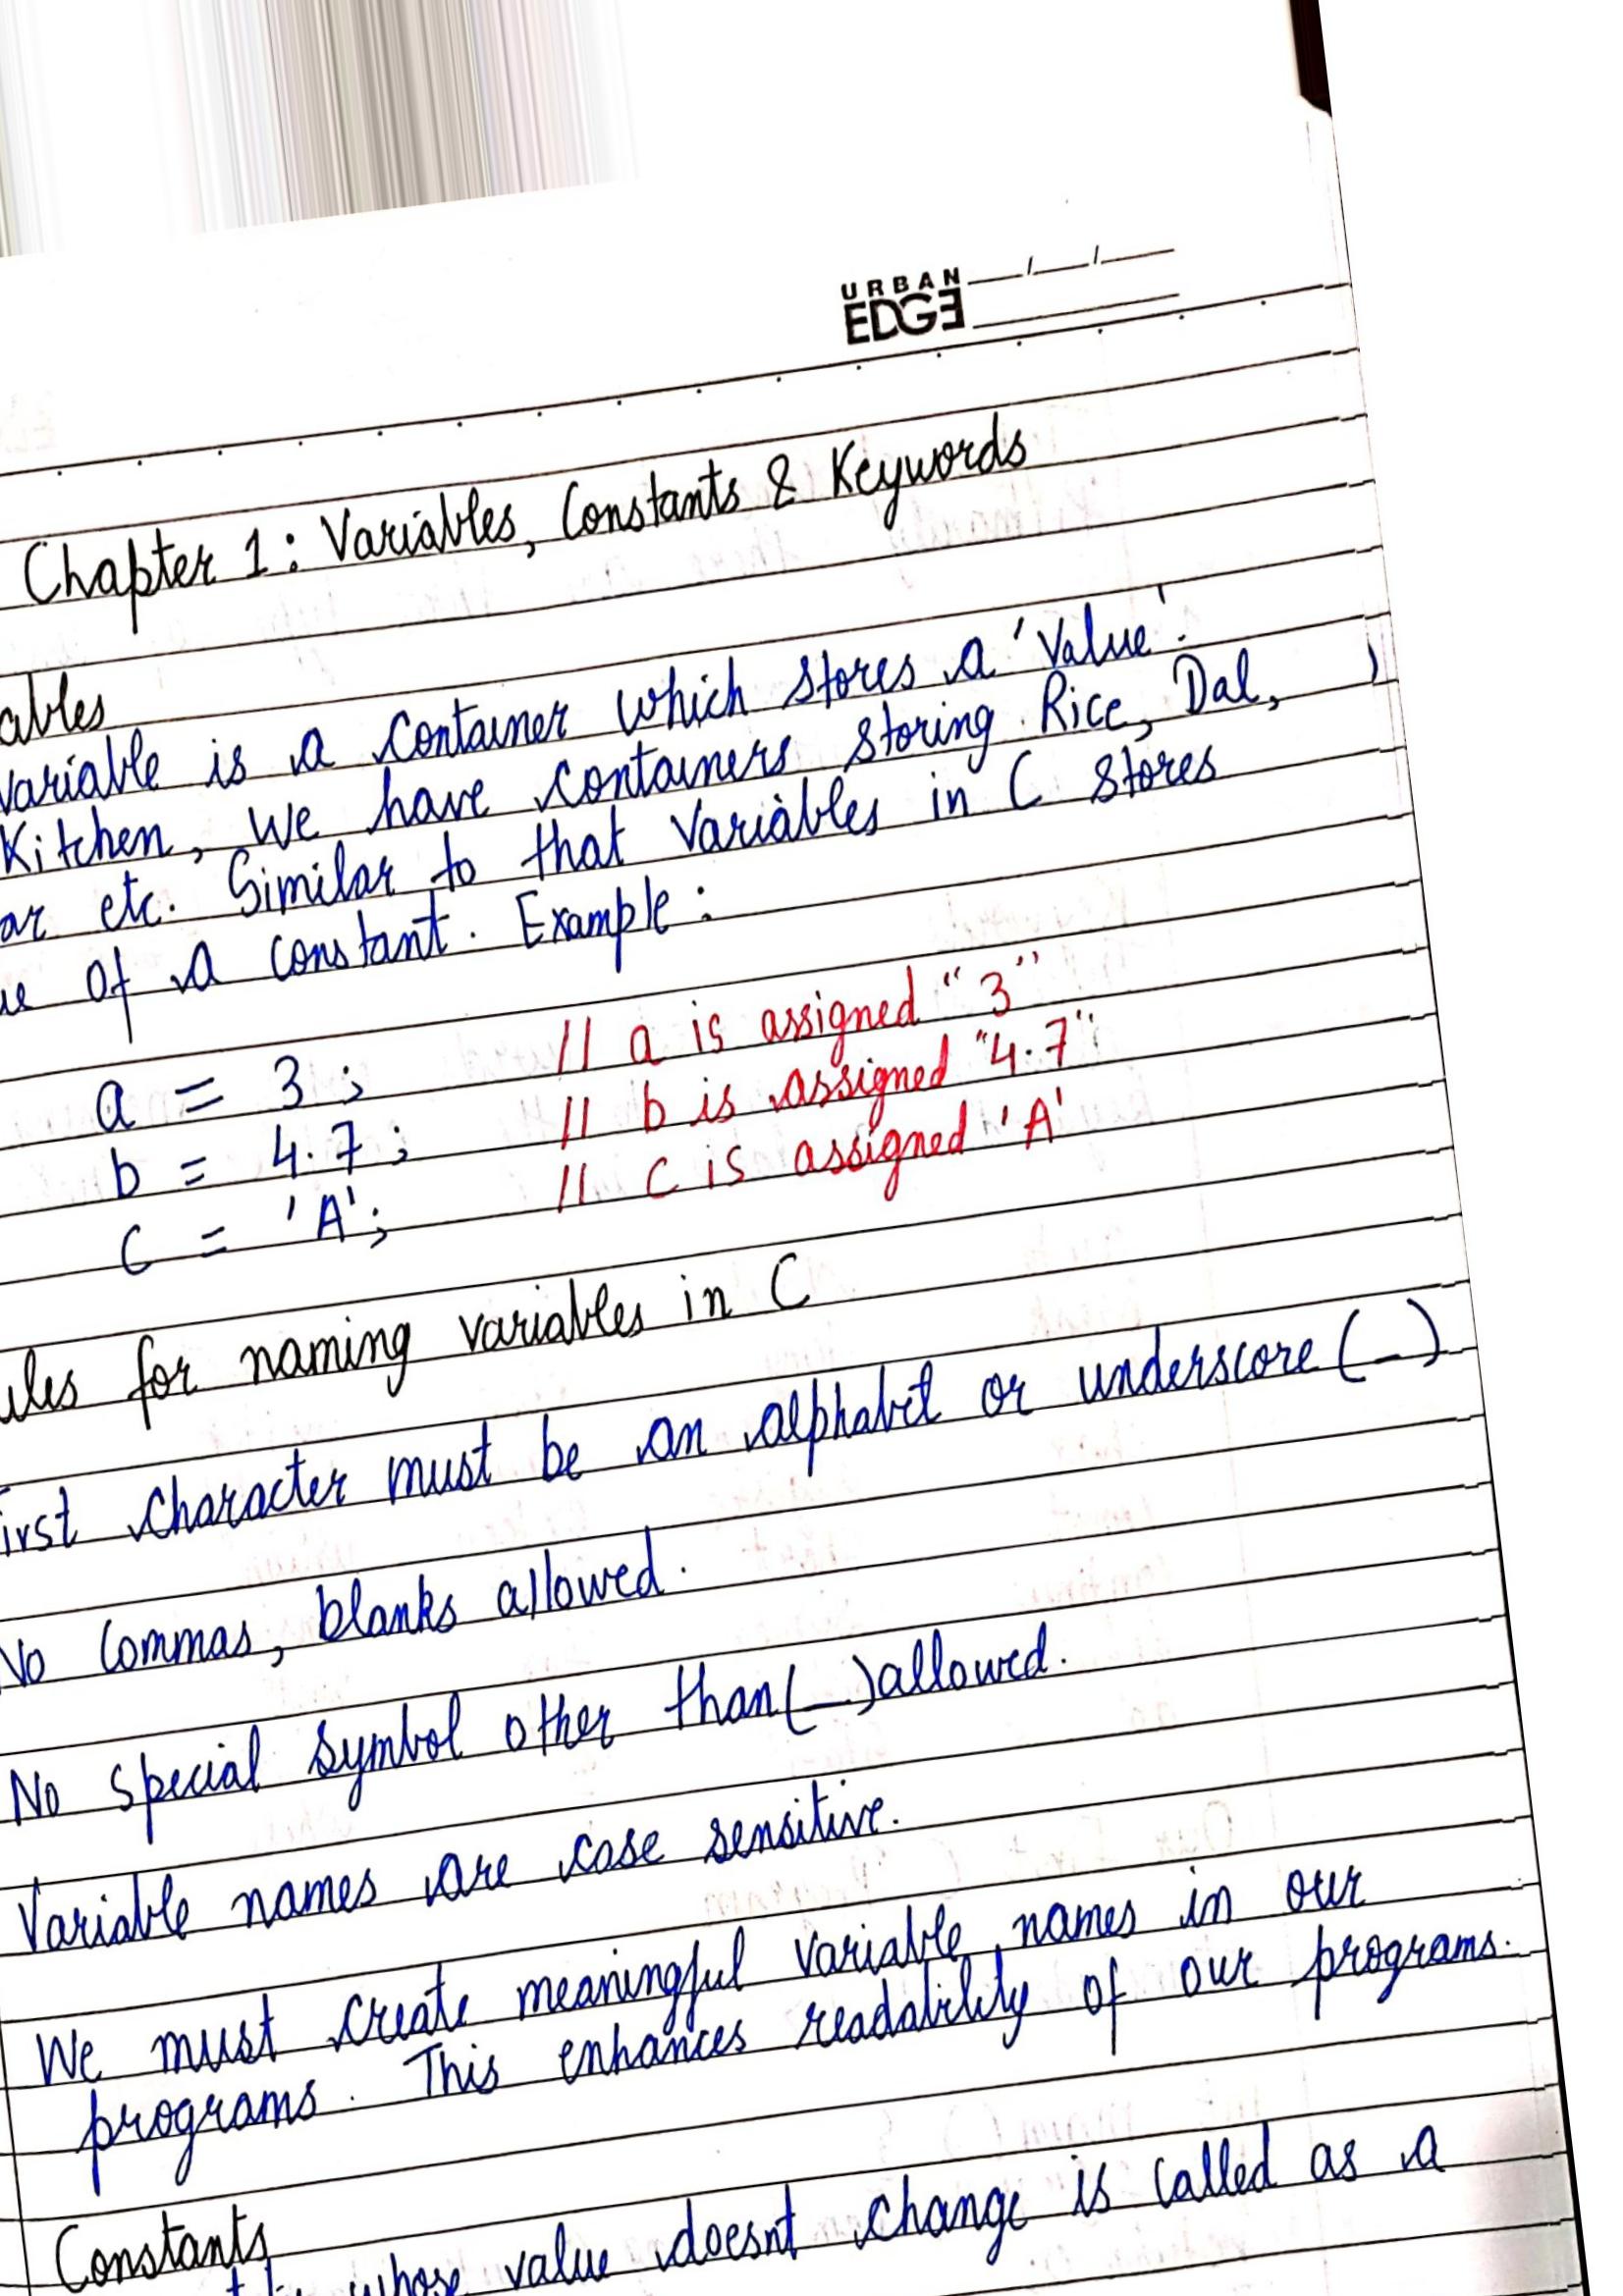 URBAN
EDGE
Chapter 1: Variables, Constants & Keywords
ables
variable is a container which stores a 'Value'.
Kitchen, We have containers storing Rice, Dal,
ar etc. Similar to that Variables in C stores
ue of a constant. Example:
a = 3; // a is assigned "3"
b = 4.7; // b is assigned "4.7"
c = 'A'; // c is assigned 'A'
ules for naming variables in C
irst character must be an alphabet or underscore (_)
No Commas, blanks allowed.
No special symbol other than (_) allowed.
Variable names are case sensitive.
We must create meaningful variable names in our
programs. This enhances readability of our programs.
Constants
whose value doesnt change is called as a